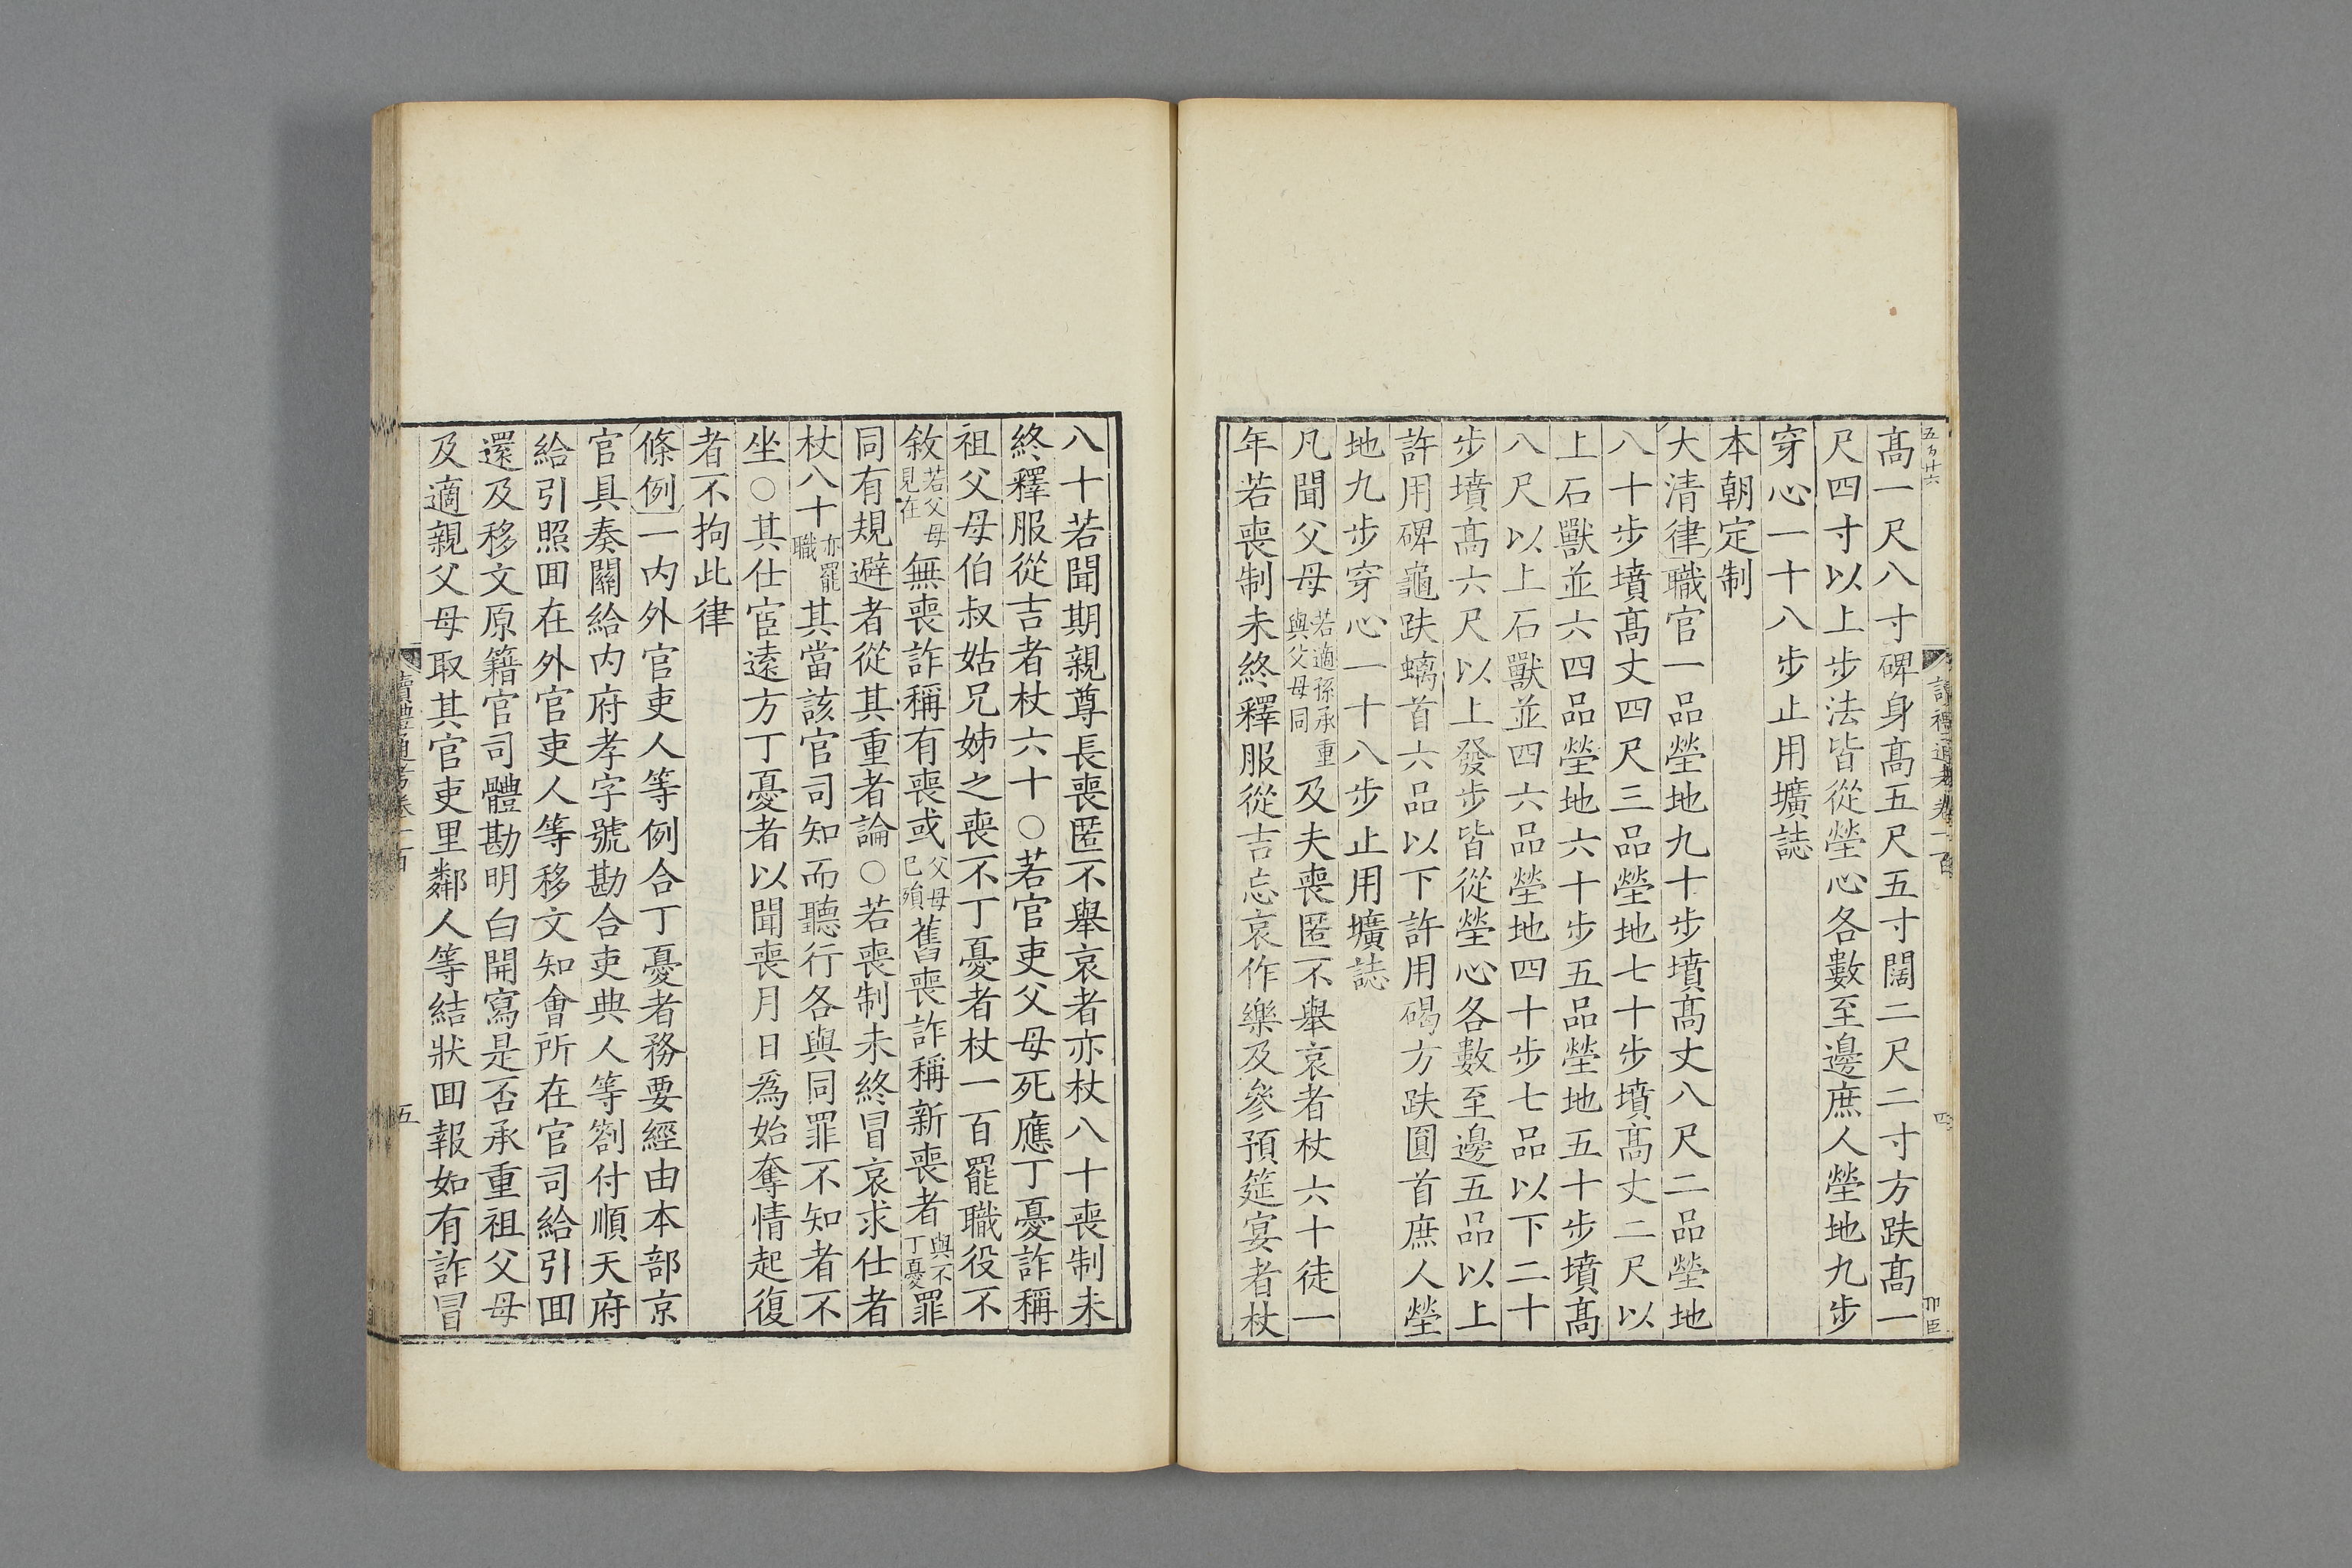 高一尺八寸碑身高五尺五寸闊二尺二寸方趺高一
尺四寸以上步法皆從塋心各數至邊庶人塋地九步
穿心一十八步止用壙誌
本朝定制
大清律職官一品塋地九十步墳高丈八尺二品塋地
八十步墳高丈四尺三品塋地七十步墳高丈二尺以
上石獸並六四品塋地六十步五品塋地五十步墳高
八尺以上石獸並四六品塋地四十步七品以下二十
步墳高六尺以上發步皆從塋心各數至邊五品以上
許用碑龜趺螭首六品以下許用碣方趺圓首庶人塋
地九步穿心一十八步止用壙誌
凡聞父母若適孫承重與父母同及夫喪匿不舉哀者杖六十徒一
年若喪制未終釋服從吉忘哀作樂及參預筵宴者杖
八十若聞期親尊長喪匿不舉哀者亦杖八十喪制未
終釋服從吉者杖六十○若官吏父母死應丁憂詐稱
祖父母伯叔姑兄姊之喪不丁憂者杖一百罷職役不
敘若父母見在無喪詐稱有喪或父母已殯舊喪詐稱新喪者與不丁憂罪
同有規避者從其重者論○若喪制未終冒哀求仕者
杖八十亦罷職其當該官司知而聽行各與同罪不知者不
坐○其仕宦遠方丁憂者以聞喪月日爲始奪情起復
者不拘此律
條例一内外官吏人等例合丁憂者務要經由本部京
官具奏關給内府孝字號勘合吏典人等劄付順天府
給引照回在外官吏人等移文知會所在官司給引回
還及移文原籍官司體勘明白開寫是否承重祖父母
及適親父母取其官吏里鄰人等結狀回報如有詐冒
讀禮通考卷一百
五